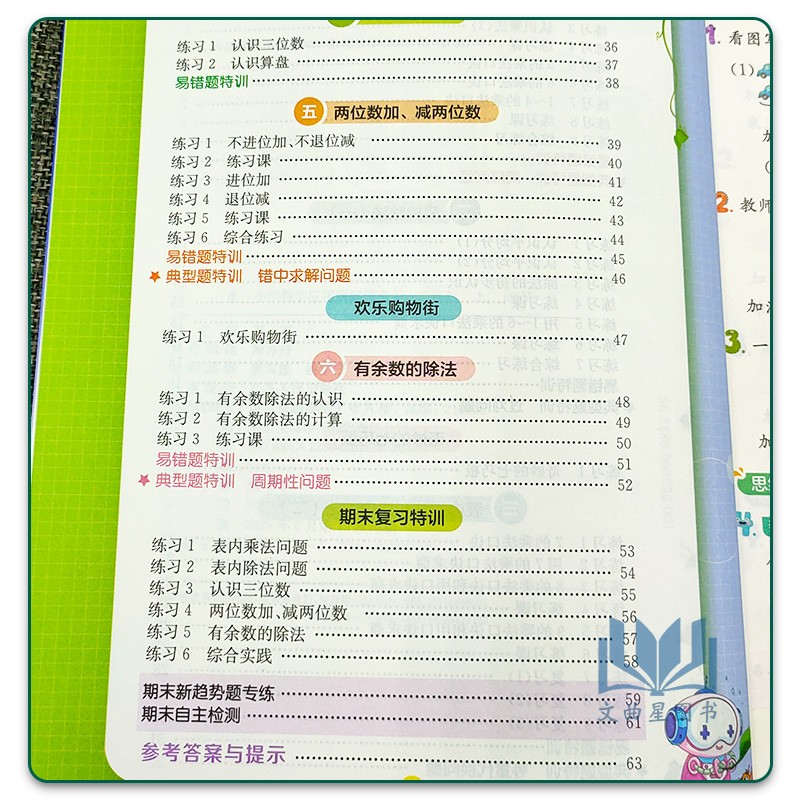 练习1 认识三位数 36
练习2 认识算盘 37
易错题特训 38
五 两位数加、减两位数
练习1 不进位加、不退位减 39
练习2 练习课 40
练习3 进位加 41
练习4 退位减 42
练习5 练习课 43
练习6 综合练习 44
易错题特训 45
★ 典型题特训 错中求解问题 46
欢乐购物街
练习1 欢乐购物街 47
六 有余数的除法
练习1 有余数除法的认识 48
练习2 有余数除法的计算 49
练习3 练习课 50
易错题特训 51
★ 典型题特训 周期性问题 52
期末复习特训
练习1 表内乘法问题 53
练习2 表内除法问题 54
练习3 认识三位数 55
练习4 两位数加、减两位数 56
练习5 有余数的除法 57
练习6 综合实践 58
期末新趋势题专练 59
期末自主检测 61
参考答案与提示 63
文曲星图书
1. 看图写
(1)
加
2. 教师
加法
3. 一
加
4.